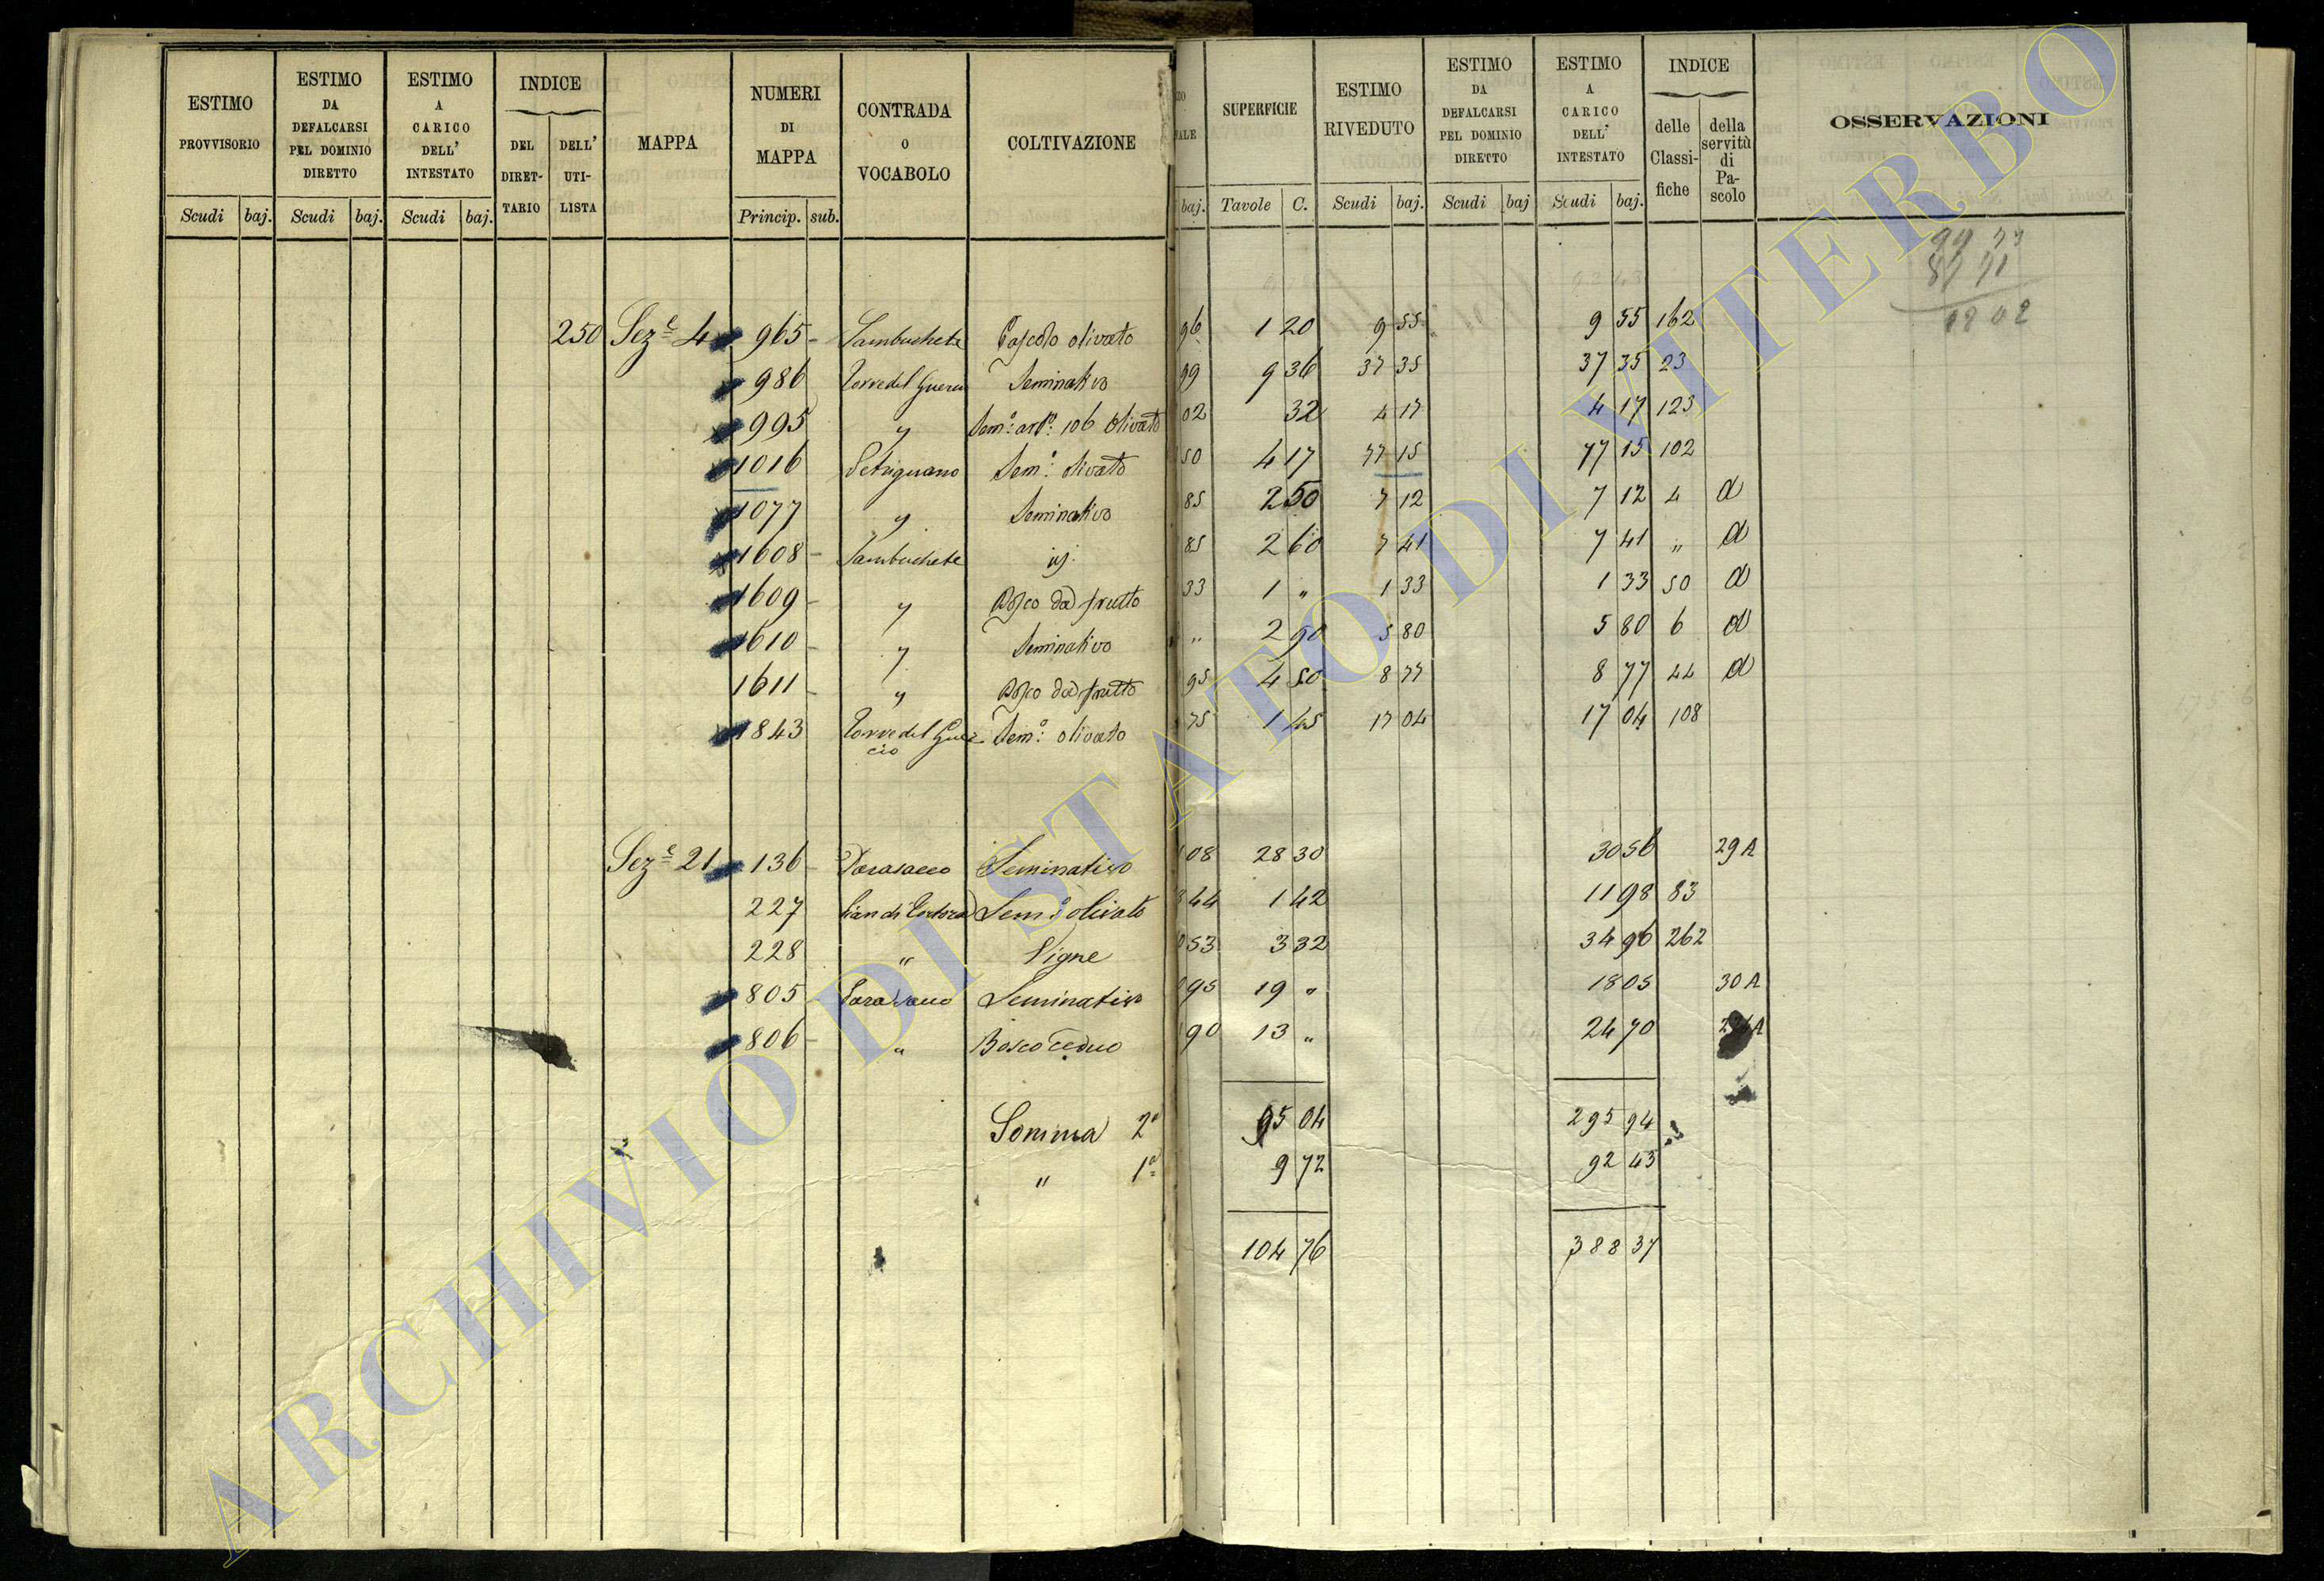 ESTIMO PROVVISORIO
Scudi baj.
ESTIMO DA DEFALCARSI PEL DOMINIO DIRETTO
Scudi baj.
ESTIMO A CARICO DELL' INTESTATO
Scudi baj.
INDICE
DEL DIRET- TARIO
DELL' UTI- LISTA
MAPPA
NUMERI DI MAPPA
Princip. sub.
CONTRADA O VOCABOLO
COLTIVAZIONE
ALE
baj.
SUPERFICIE
Tavole C.
ESTIMO RIVEDUTO
Scudi baj.
ESTIMO DA DEFALCARSI PEL DOMINIO DIRETTO
Scudi baj
ESTIMO A CARICO DELL' INTESTATO
Scudi baj.
INDICE
delle Classi- fiche
della servitù di Pa- scolo
OSSERVAZIONI
250 Seze 4 965 Sambuchete Pascolo olivato 96 1 20 9 55 9 55 162
986 Torre del Guercio Seminativo 99 9 36 37 35 37 35 23
995 " Semo: arbo: 106 Olivato 02 32 4 17 4 17 123
1016 Petrignano Semo: olivato 50 4 17 77 15 77 15 102
1077 " Seminativo 85 2 50 7 12 7 12 4 a
1608 Sambuchete id. 85 2 60 7 41 7 41 " a
1609 " Bosco da frutto 33 1 " 1 33 1 33 50 a
1610 " Seminativo " 2 90 5 80 5 80 6 a
1611 " Bosco da frutto 95 4 50 8 77 8 77 44 a
1843 Torre del Guercio Semo: olivato 75 1 45 17 04 17 04 108
Seze 21 136 Parasacco Seminativo 08 28 30 30 56 29 A
227 Pian di Tortora Semo: olivato 44 1 42 11 98 83
228 " Vigne 53 3 32 34 96 262
805 Parasacco Seminativo 95 19 " 18 05 30 A
806 " Bosco Ceduo 90 13 " 24 70
Somma 2a 95 04 295 94
" 1a 9 72 92 43
104 76 388 37
ARCHIVIO DI STATO DI VITERBO